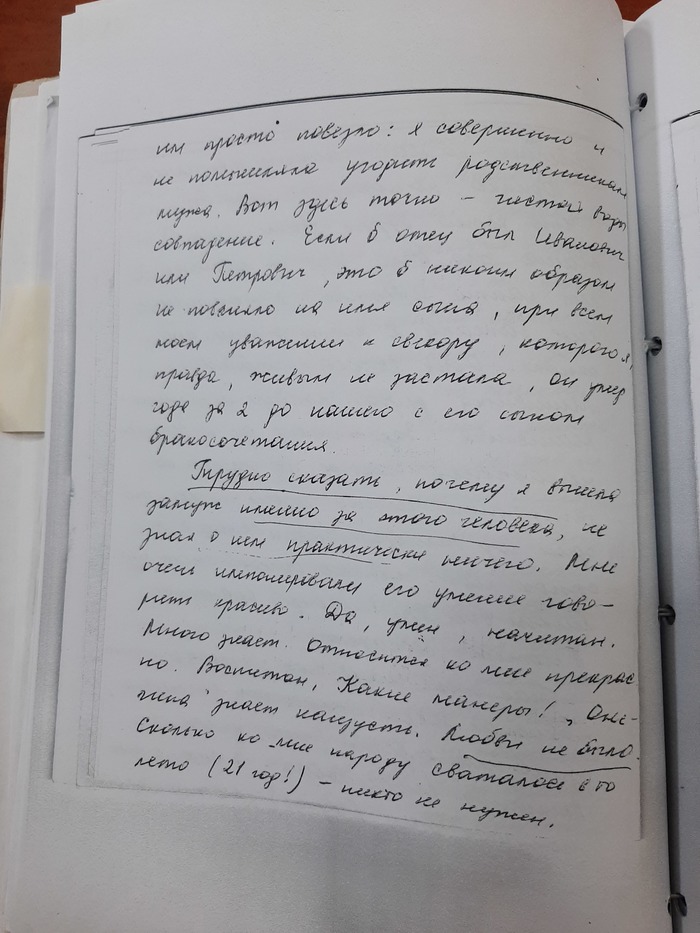 им просто повезло: я совершенно и
не помышляла угодить родственникам
мужа. Вот здесь точно – чистой воды
совпадение. Если б отец был Иванович
или Петрович, это б никоим образом
не повлияло на имя сына, при всем
моем уважении к свекору, которого я,
правда, живым не застала, он умер
года за 2 до нашего с его сыном
бракосочетания.
Трудно сказать, почему я вышла
замуж именно за этого человека, не
зная о нем практически ничего. Мне
очень импонировали его умение гово-
рить красиво. Да, умен, начитан.
Много знает. Относится ко мне прекрас-
но. Воспитан, Какие манеры! „Оне-
гина" знает наизусть. Любви не было.
Сколько ко мне народу сваталось в то
лето (21 год!) – никто не нужен.